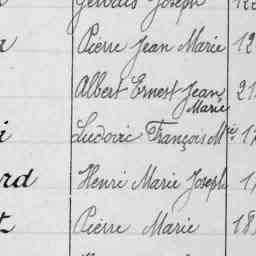 Gervais Joseph
Pierre Jean Marie 12
Albert Ernest Jean 21
Marie
i Ludovic François Mie 17
rd Henri Marie Joseph 1
t Pierre Marie 18